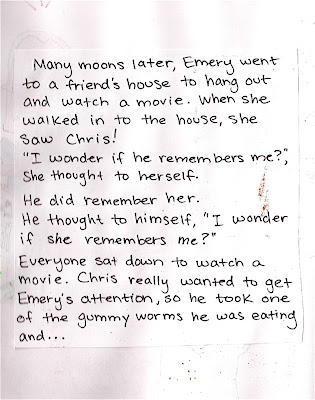 Many moons later, Emery went
to a friend's house to hang out
and watch a movie. When she
walked in to the house, she
saw Chris!
"I wonder if he remembers me?",
she thought to herself.
He did remember her.
He thought to himself, "I wonder
if she remembers me?"
Everyone sat down to watch a
movie. Chris really wanted to get
Emery's attention, so he took one
of the gummy worms he was eating
and...